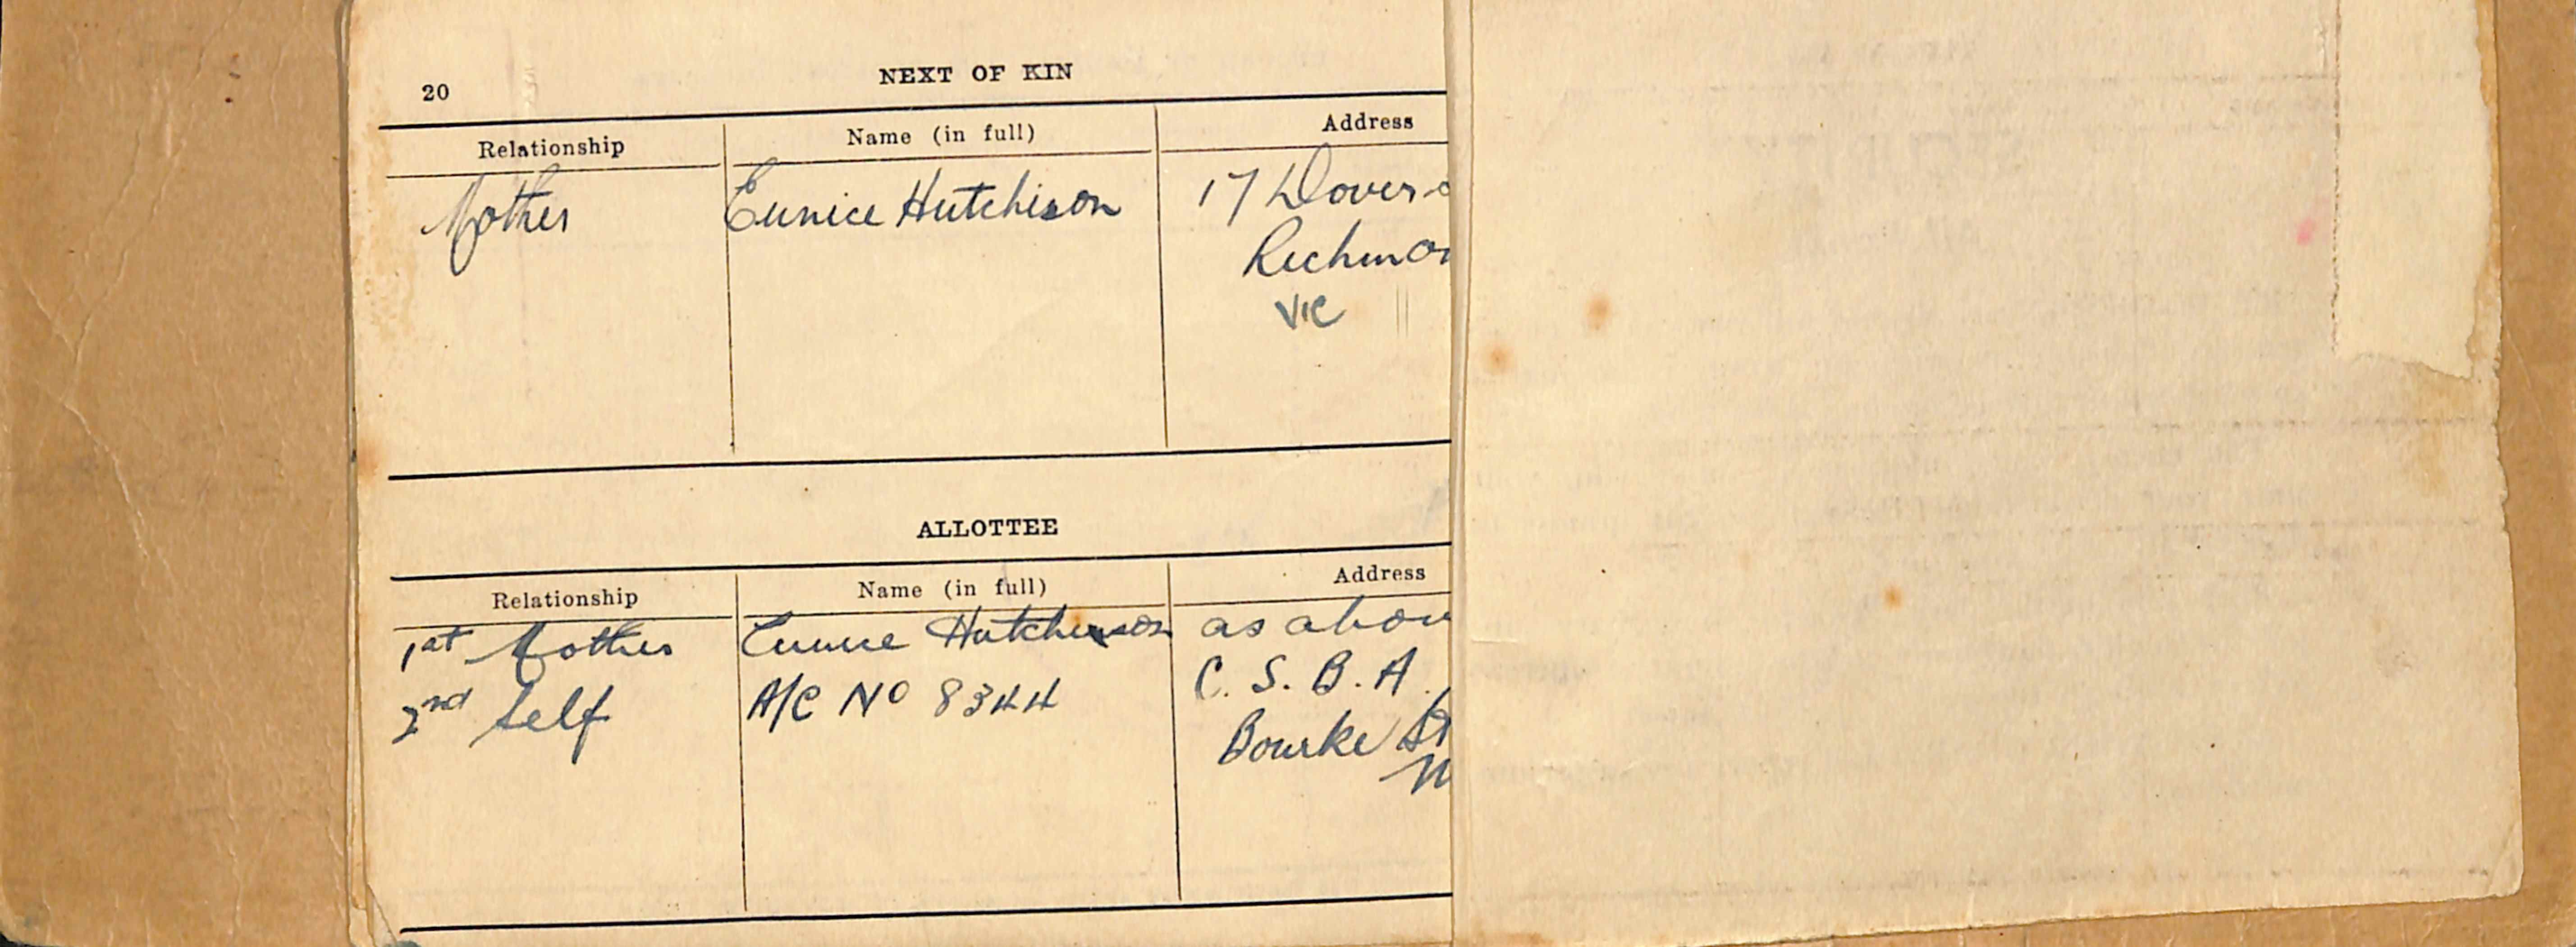 20
NEXT OF KIN
Relationship Name (in full) Address
Mother Eunice Hutchison 17 Dover
Richmon
VIC
ALLOTTEE
Relationship Name (in full) Address
1st Mother Eunice Hutchinson as abov
2nd Self A/C No 8344 C. S. B. A.
Bourke St